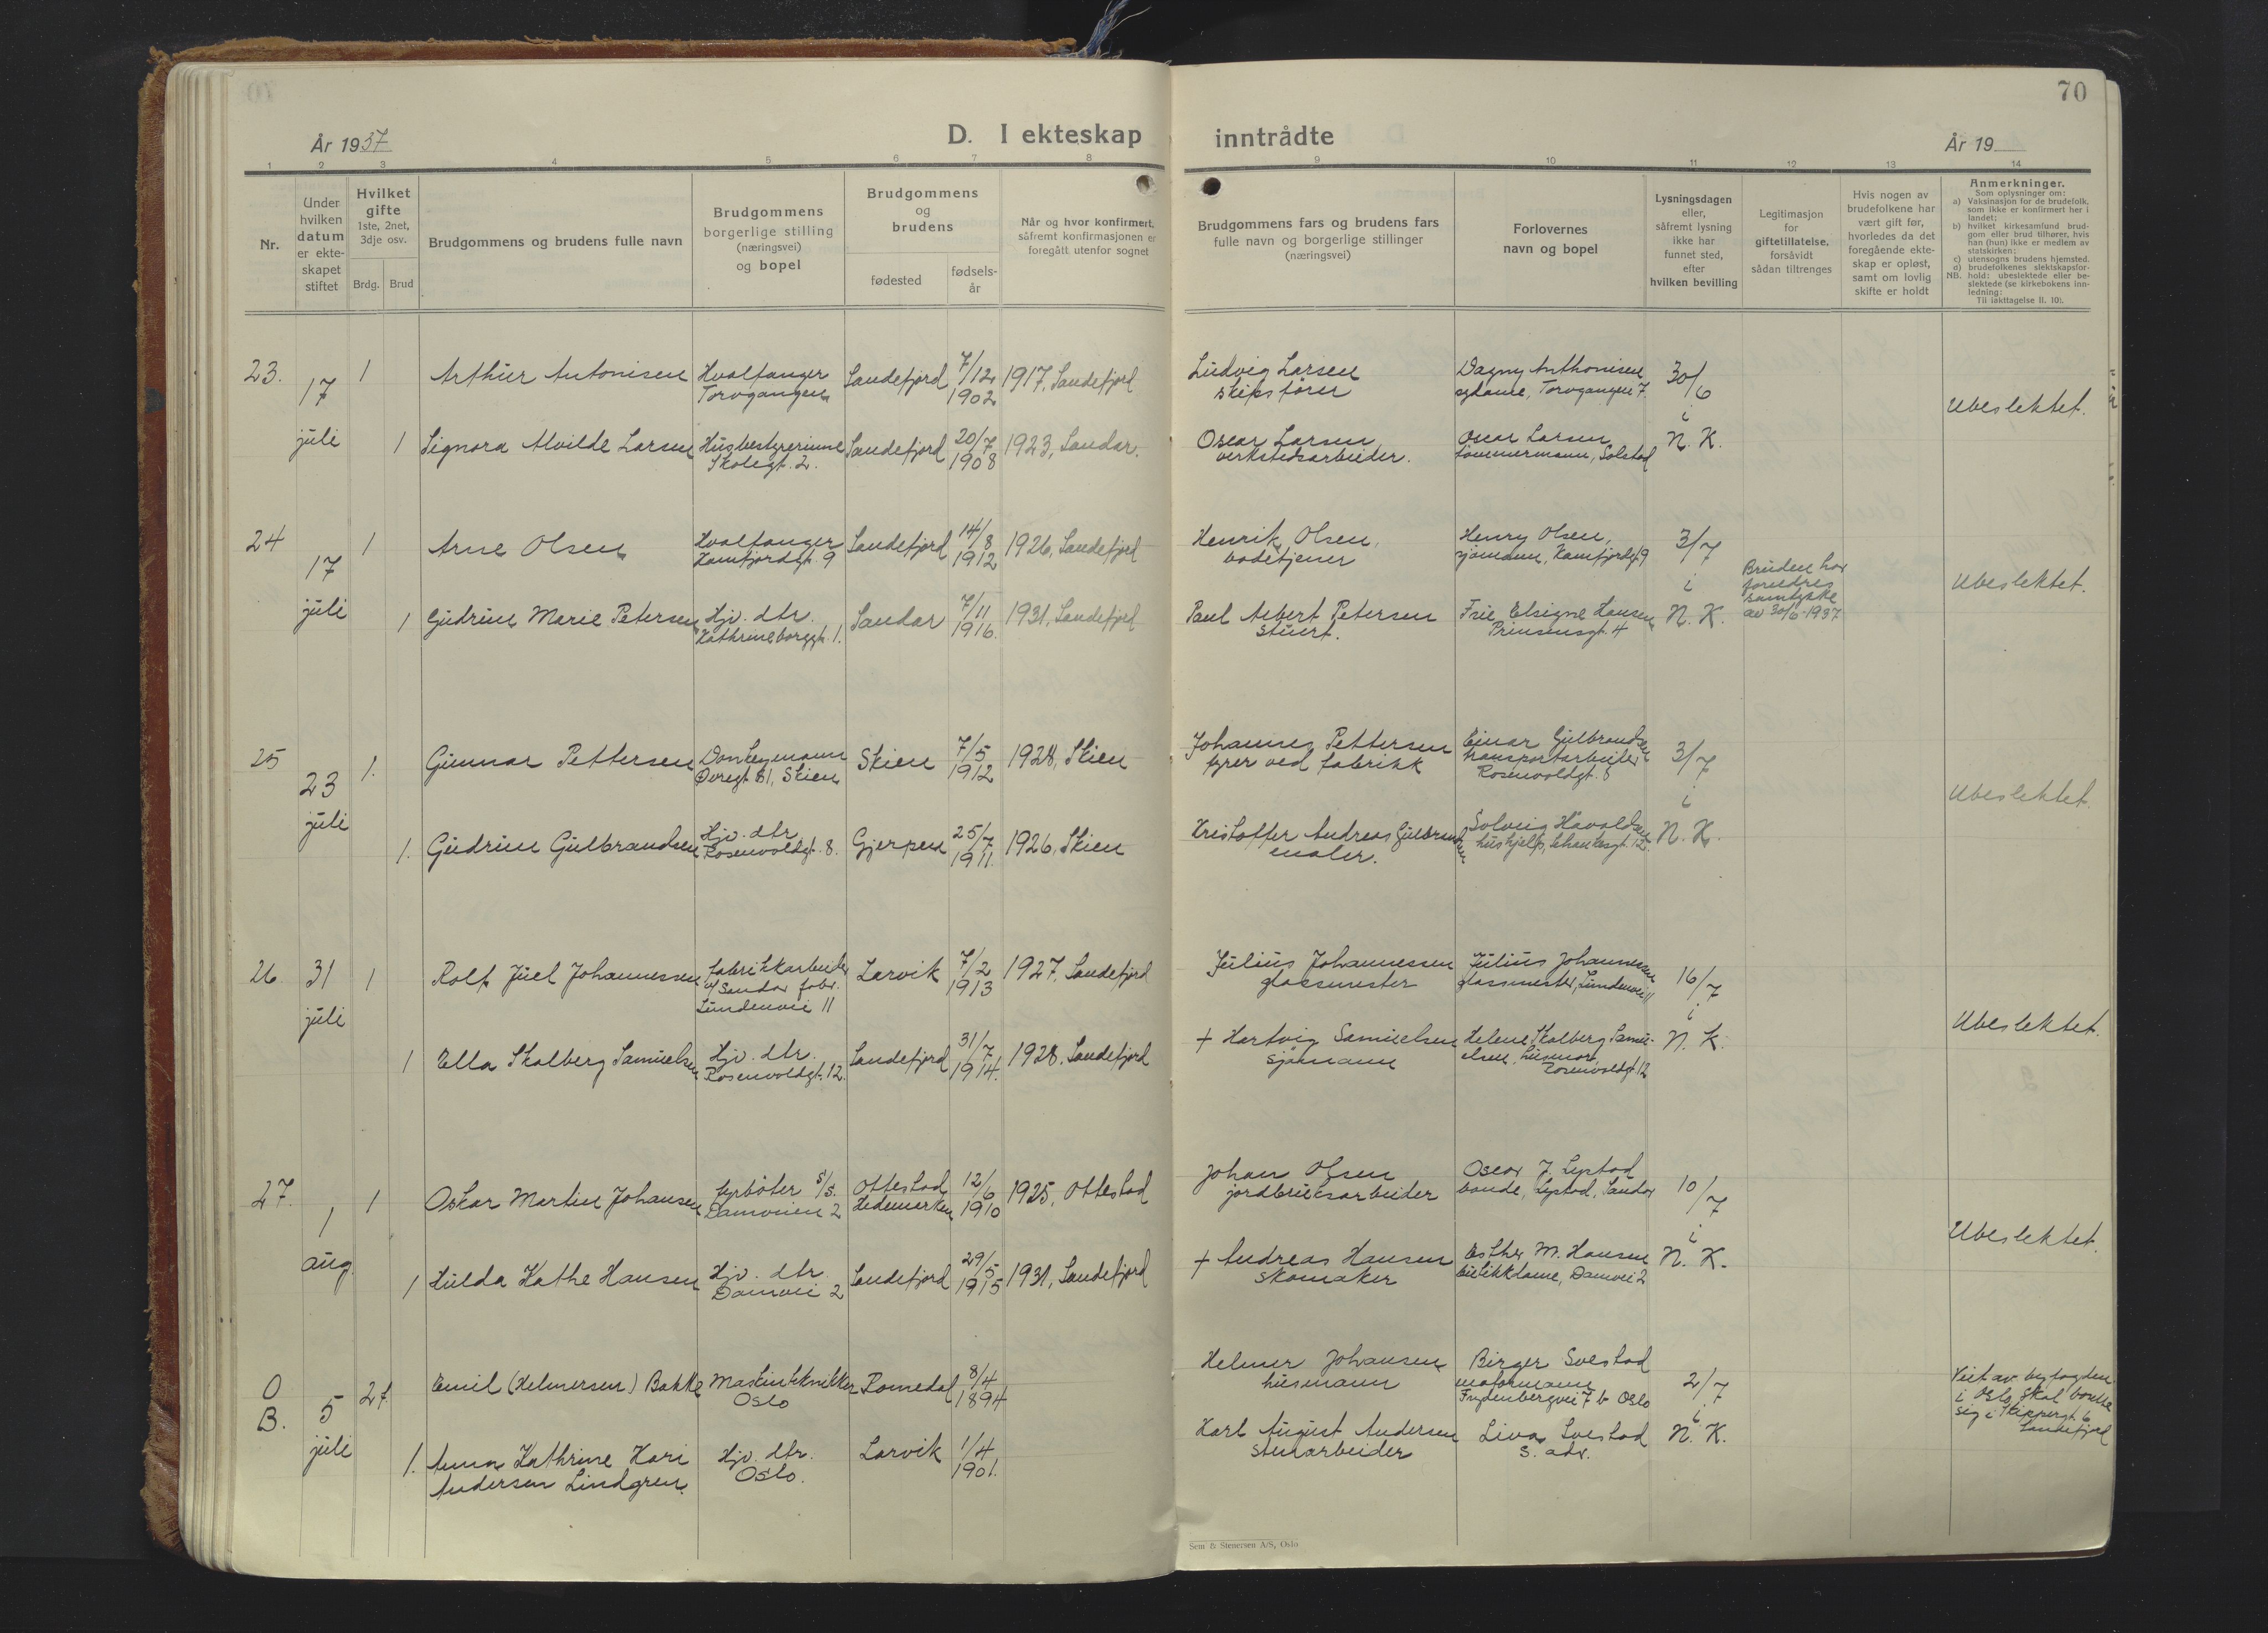 70
År 1937
D. I ekteskap inntrådte
År 19
1 2 3 4 5 6 7 8 9 10 11 12 13 14
Nr.
Under hvilken datum er ekteskapet stiftet
Hvilket gifte 1ste, 2net, 3dje osv.
Brdg. Brud
Brudgommens og brudens fulle navn
Brudgommens borgerlige stilling (næringsvei) og bopel
Brudgommens og brudens
fødested
fødsels-år
Når og hvor konfirmert,
såfremt konfirmasjonen er
foregått utenfor sognet
Brudgommens fars og brudens fars
fulle navn og borgerlige stillinger
(næringsvei)
Forlovernes
navn og bopel
Lysningsdagen
eller,
såfremt lysning
ikke har
funnet sted,
efter
hvilken bevilling
Legitimasjon
for
giftetillatelse,
forsåvidt
sådan tiltrenges
Hvis nogen av
brudefolkene har
vært gift før,
hvorledes da det
foregående ekte-
skap er opløst,
samt om lovlig
skifte er holdt
Anmerkninger.
Som oplysninger om:
a) Vaksinasjon for de brudefolk,
som ikke er konfirmert her i
landet;
b) hvilket kirkesamfund brud-
gom eller brud tilhører, hvis
han (hun) ikke er medlem av
statskirken;
c) utensogns brudens hjemsted.
d) brudefolkenes slektskapsfor-
NB. hold: ubeslektede eller be-
slektede (se kirkebokens inn-
ledning:
Til iakttagelse II. 10).
23. 17 juli 1 Arthur Antonisen Hvalfanger Torvgangen Sandefjord 7/12 1902 1917, Sandefjord
Ludvig Larsen skipsfører
Dagny Anthonisen sydame, Torvgangen 7.
30/6 i N. K.
Ubeslektet.
1 Signora Alvilde Larsen Husbestyrerinne Skolegt. 2. Sandefjord 20/7 1908 1923, Sandar.
Oscar Larsen verkstedsarbeider.
Oscar Larsen tømmermann, Solstad
24 17 juli 1 Arne Olsen Hvalfanger Kamfjordgt. 9 Sandefjord 14/8 1912 1926, Sandefjord
Henrik Olsen, badetjener
Henry Olsen, sjømann, Kamfjordgt 9
3/7 i N. K.
Bruden har foreldres samtykke av 30/6-1937
Ubeslektet.
1 Gudrun Marie Petersen Hjv. dtr. Kathrineborggt. 1. Sandar 7/11 1916. 1931, Sandefjord
Paul Albert Petersen stuert.
Elsigne Hansen Prinsensgt. 4
25 23 juli 1. Gunnar Pettersen Donkeymann Øvregt. 81, Skien Skien 7/5 1912 1928, Skien
Johannes Pettersen fyrer ved fabrikk
Einar Gulbrandsen transportarbeider Rosenvoldgt. 8
3/7 i N. K.
Ubeslektet.
1. Gudrun Gulbrandsen Hjv. dtr. Rosenvoldgt. 8. Gjerpen 25/7 1911. 1926, Skien
Kristoffer Andreas Gulbrandsen maler.
Solveig Havoldsen hushjelp,
26. 31 juli 1 Rolf Juel Johannessen fabrikkarbeider v/ Sandar fabr. Lundenvei 11 Larvik 7/2 1913 1927, Sandefjord
Julius Johannessen glassmester
Julius Johannessen glassmester, Lundenvei 11
16/7 i N. K.
Ubeslektet.
1 Ella Skalberg Samuelsen Hjv. dtr. Rosenvoldgt. 12. Sandefjord 31/7 1914. 1928. Sandefjord
+ Hartvig Samuelsen sjømann
Helene Skalberg Samuelsen, husmor, Rosenvoldgt. 12
27. 1 aug. 1 Oskar Martin Johansen fyrbøter S/S. Damveien 2 Ottestad Hedemarken 12/6 1910 1925, Ottestad
Johan Olsen jordbruksarbeider
Oscar J. Lystad bonde, Lystad, Sandar
10/7 i N. K.
Ubeslektet.
1 Hulda Kathe Hansen Hjv. dtr. Damvei 2 Sandefjord 29/5 1915 1931, Sandefjord
+ Andreas Hansen skomaker
Esther M. Hansen butikkdame, Damvei 2
O B. 5 juli 2. Emil (Helmersen) Bakke Maskintekniker Oslo Romedal 8/4 1894
Helmer Johansen husmann
Birger Solstad Frydenbergvei 7 b Oslo
2/7 i N. K.
Viet av byfogden i Oslo, skal bosette sig i Skippergt. 6 Sandefjord
1. Anna Kathrine Kari Andersen Lindgren. Hjv. dtr. Oslo. Larvik 1/4 1901.
Karl August Andersen stenarbeider
Solstad s. adr.
Sem & Stenersen A/S, Oslo